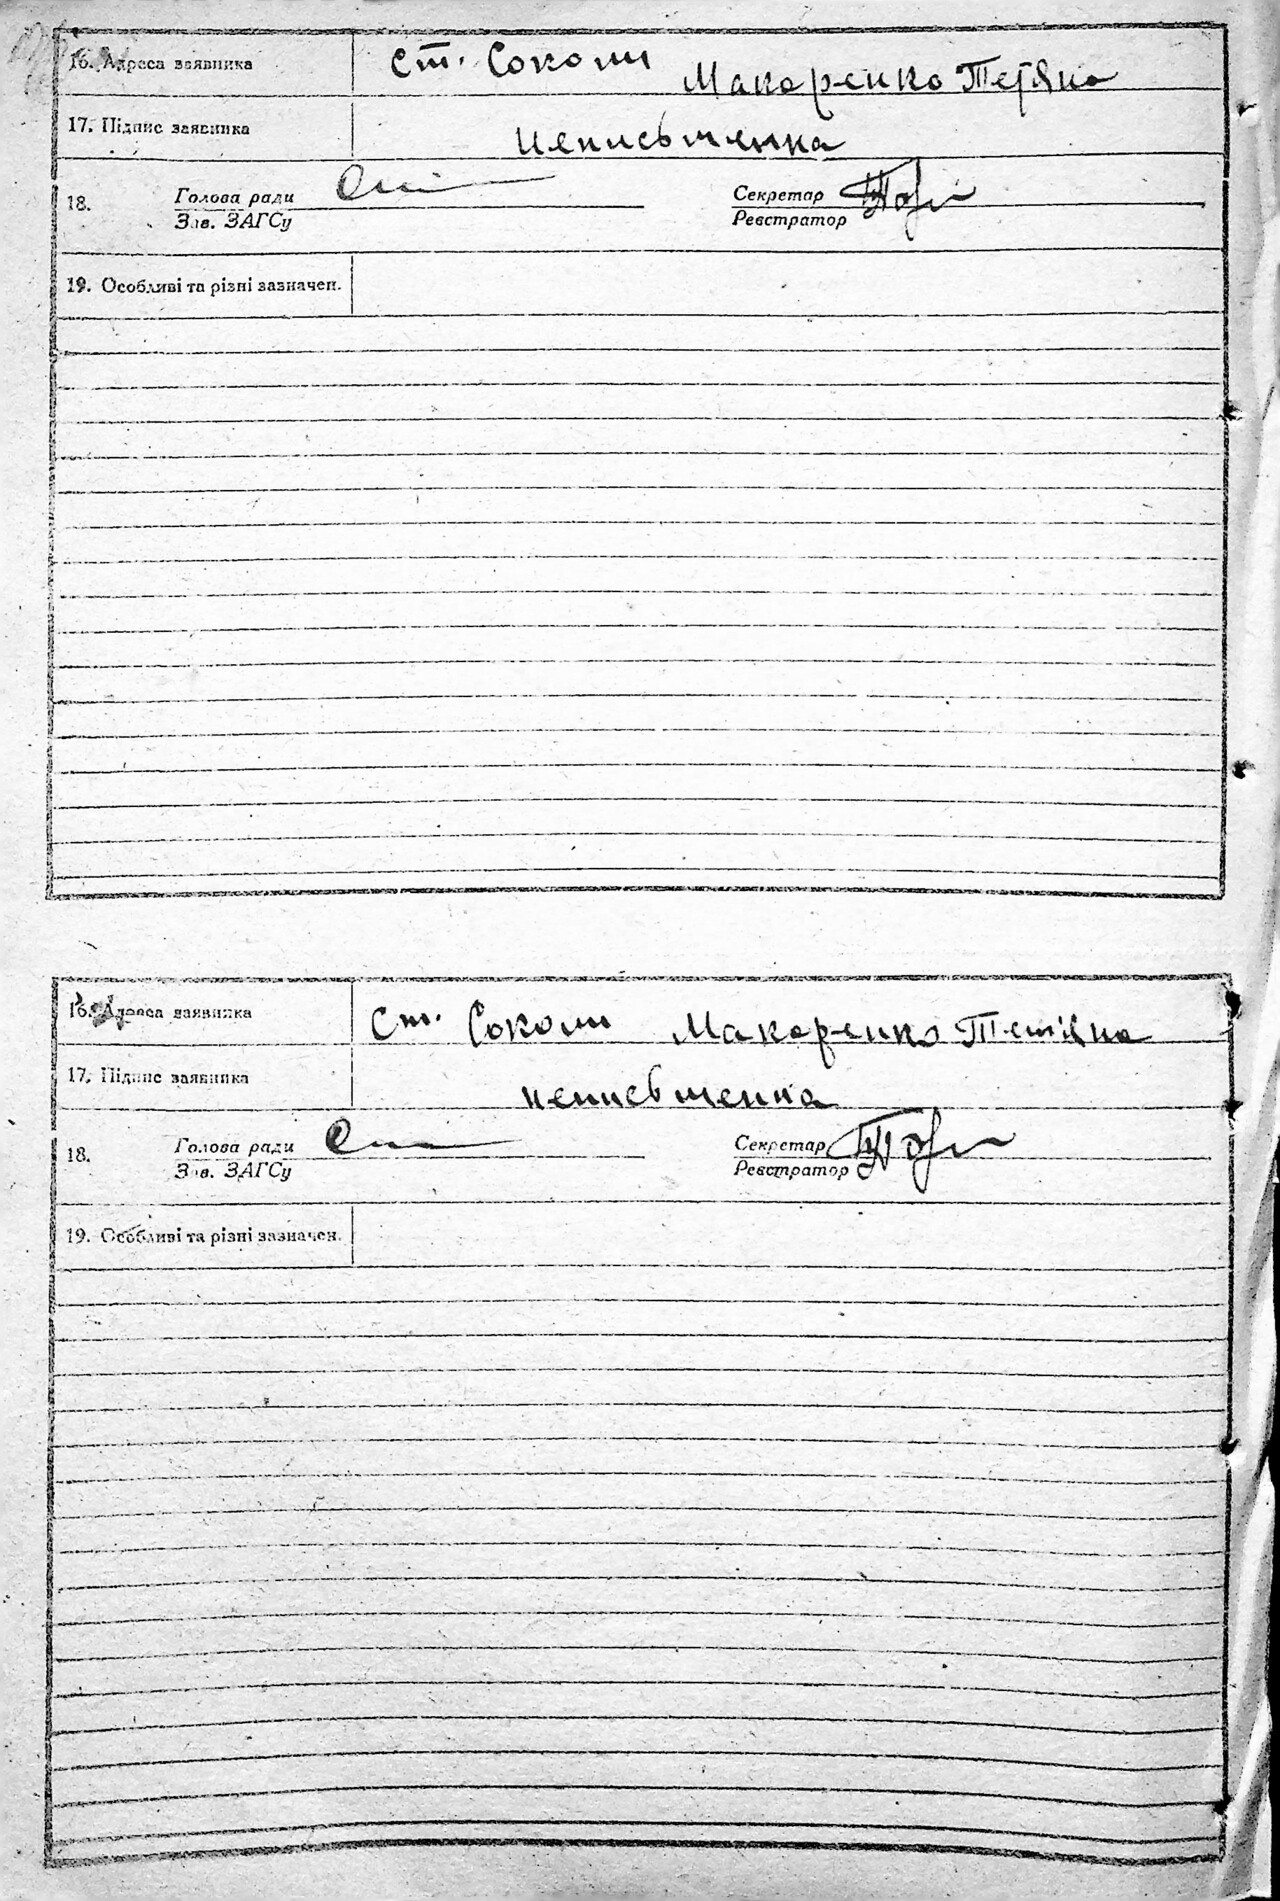 16. Адреса заявника ст. Соколи Макаренко Тетяна
17. Підпис заявника неписьменна
18. Голова ради Секретар
Зав. ЗАГСу Реєстратор
19. Особливі та різні зазначен.
16. Адреса заявника ст. Соколи Макаренко Тетіяна
17. Підпис заявника неписьменна
18. Голова ради Секретар
Зав. ЗАГСу Реєстратор
19. Особливі та різні зазначен.